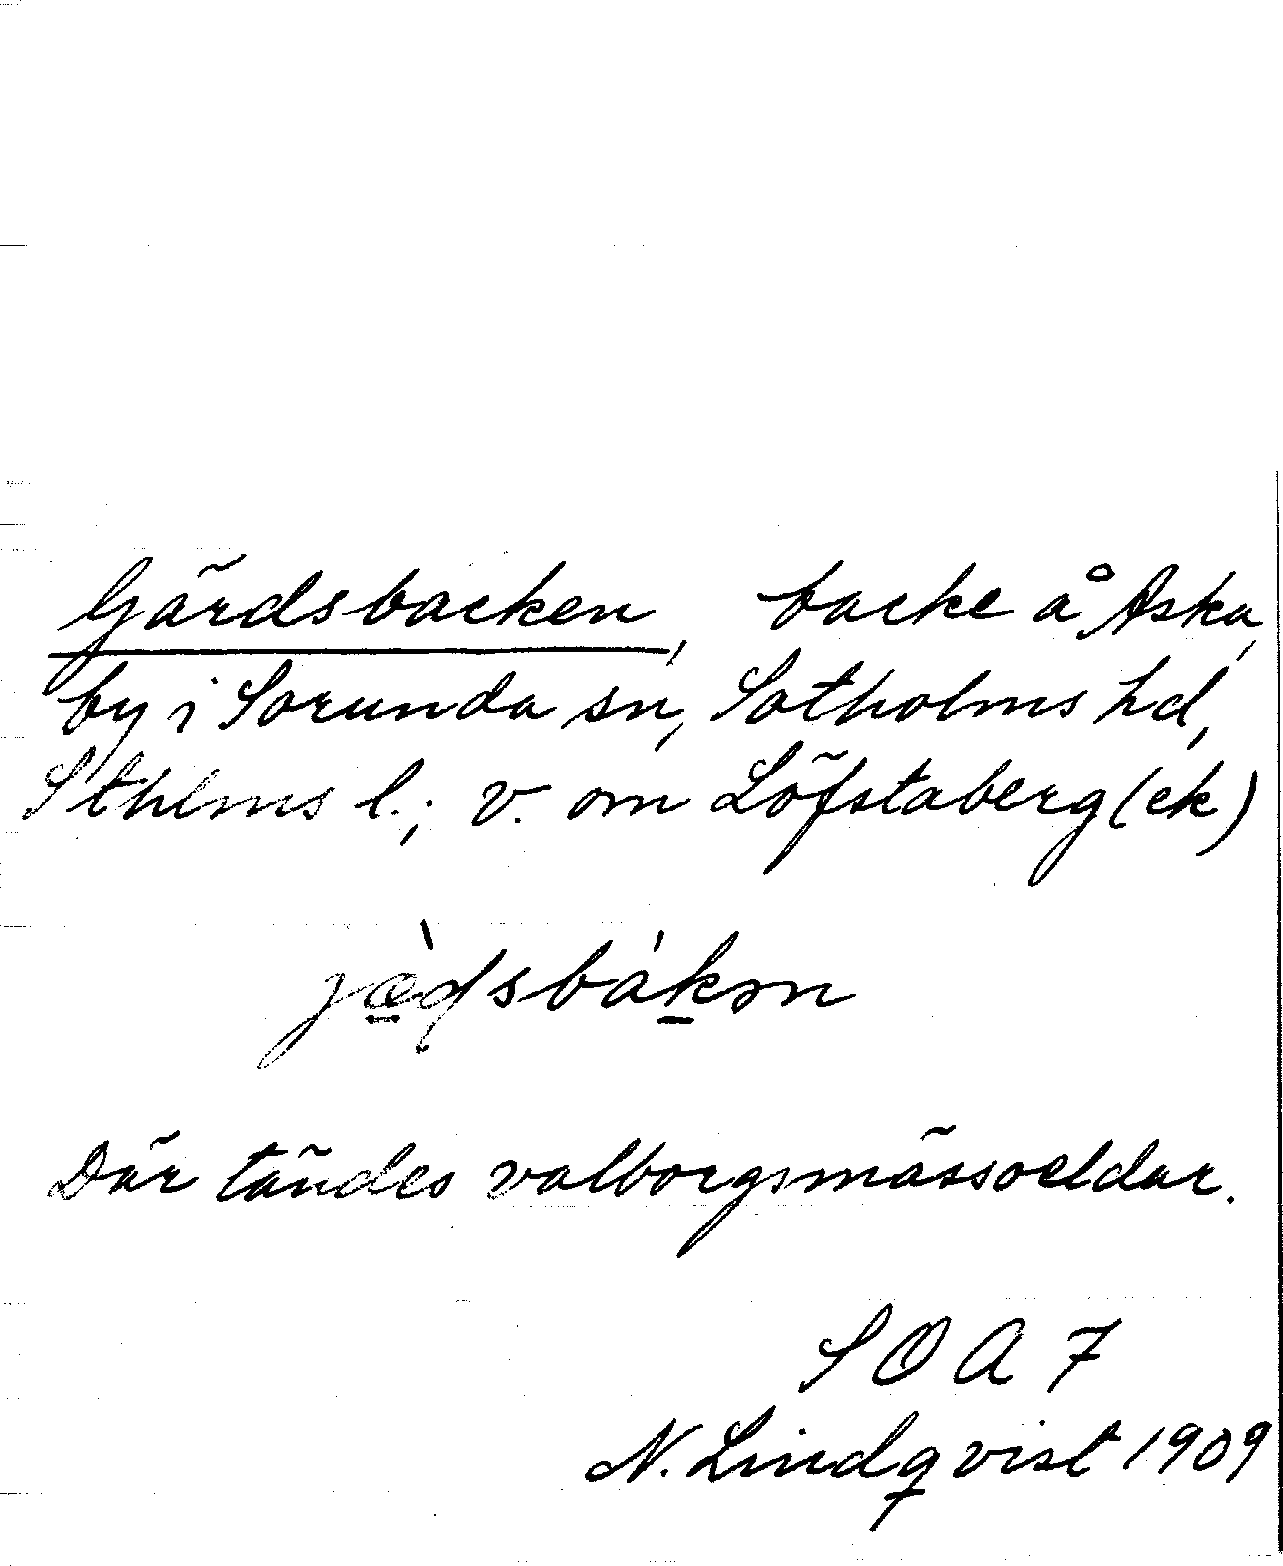 Gärdsbacken, backe å Aska,
by i Sorunda sn, Sotholms hd,
Sthlms l.; v. om Löfstaberg (ek)
jæ̀dsbákən
Där tändes valborgsmässoeldar.
S O A 7
N. Lindqvist 1909